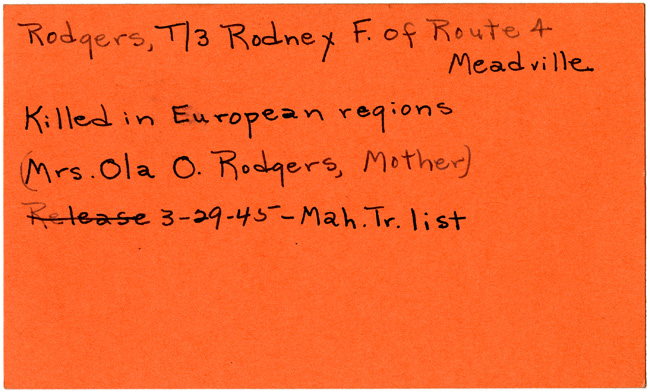 Rodgers, T/3 Rodney F. of Route 4
Meadville
Killed in European regions
(Mrs. Ola O. Rodgers, Mother)
Release 3-29-45-Mah. Tr. list